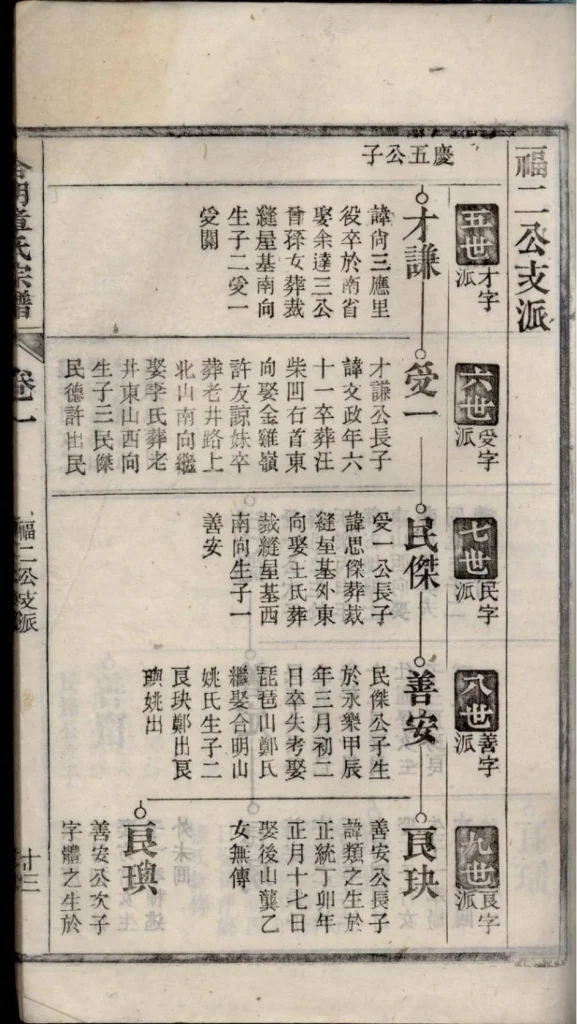 福二公支派
五世 才字派
慶五公子
才謙
諱尙三應里
役卒於南省
娶余達三公
曾孫女葬裁
縫屋基南向
生子二愛一
愛關
六世 愛字派
受一
才謙公長子
諱文政年六
十一卒葬汪
柴凹右首東
向娶金雞嶺
許友諒妹卒
葬老井路上
北山南向繼
娶李氏葬老
井東山西向
生子三民傑
民德許出民
七世 民字派
民傑
受一公長子
諱思傑葬裁
縫屋基外東
向娶王氏葬
裁縫屋基西
南向生子一
善安
八世 善字派
善安
民傑公子生
於永樂甲辰
年三月初二
日卒失考娶
琵琶山鄭氏
繼娶合明山
姚氏生子二
艮玦鄭出艮
璵姚出
九世 艮字派
艮玦
善安公長子
諱類之生於
正統丁卯年
正月十七日
娶後山龔乙
女無傳
艮璵
善安公次子
字體之生於
合明章氏宗譜
卷一
福二公支派
廿三